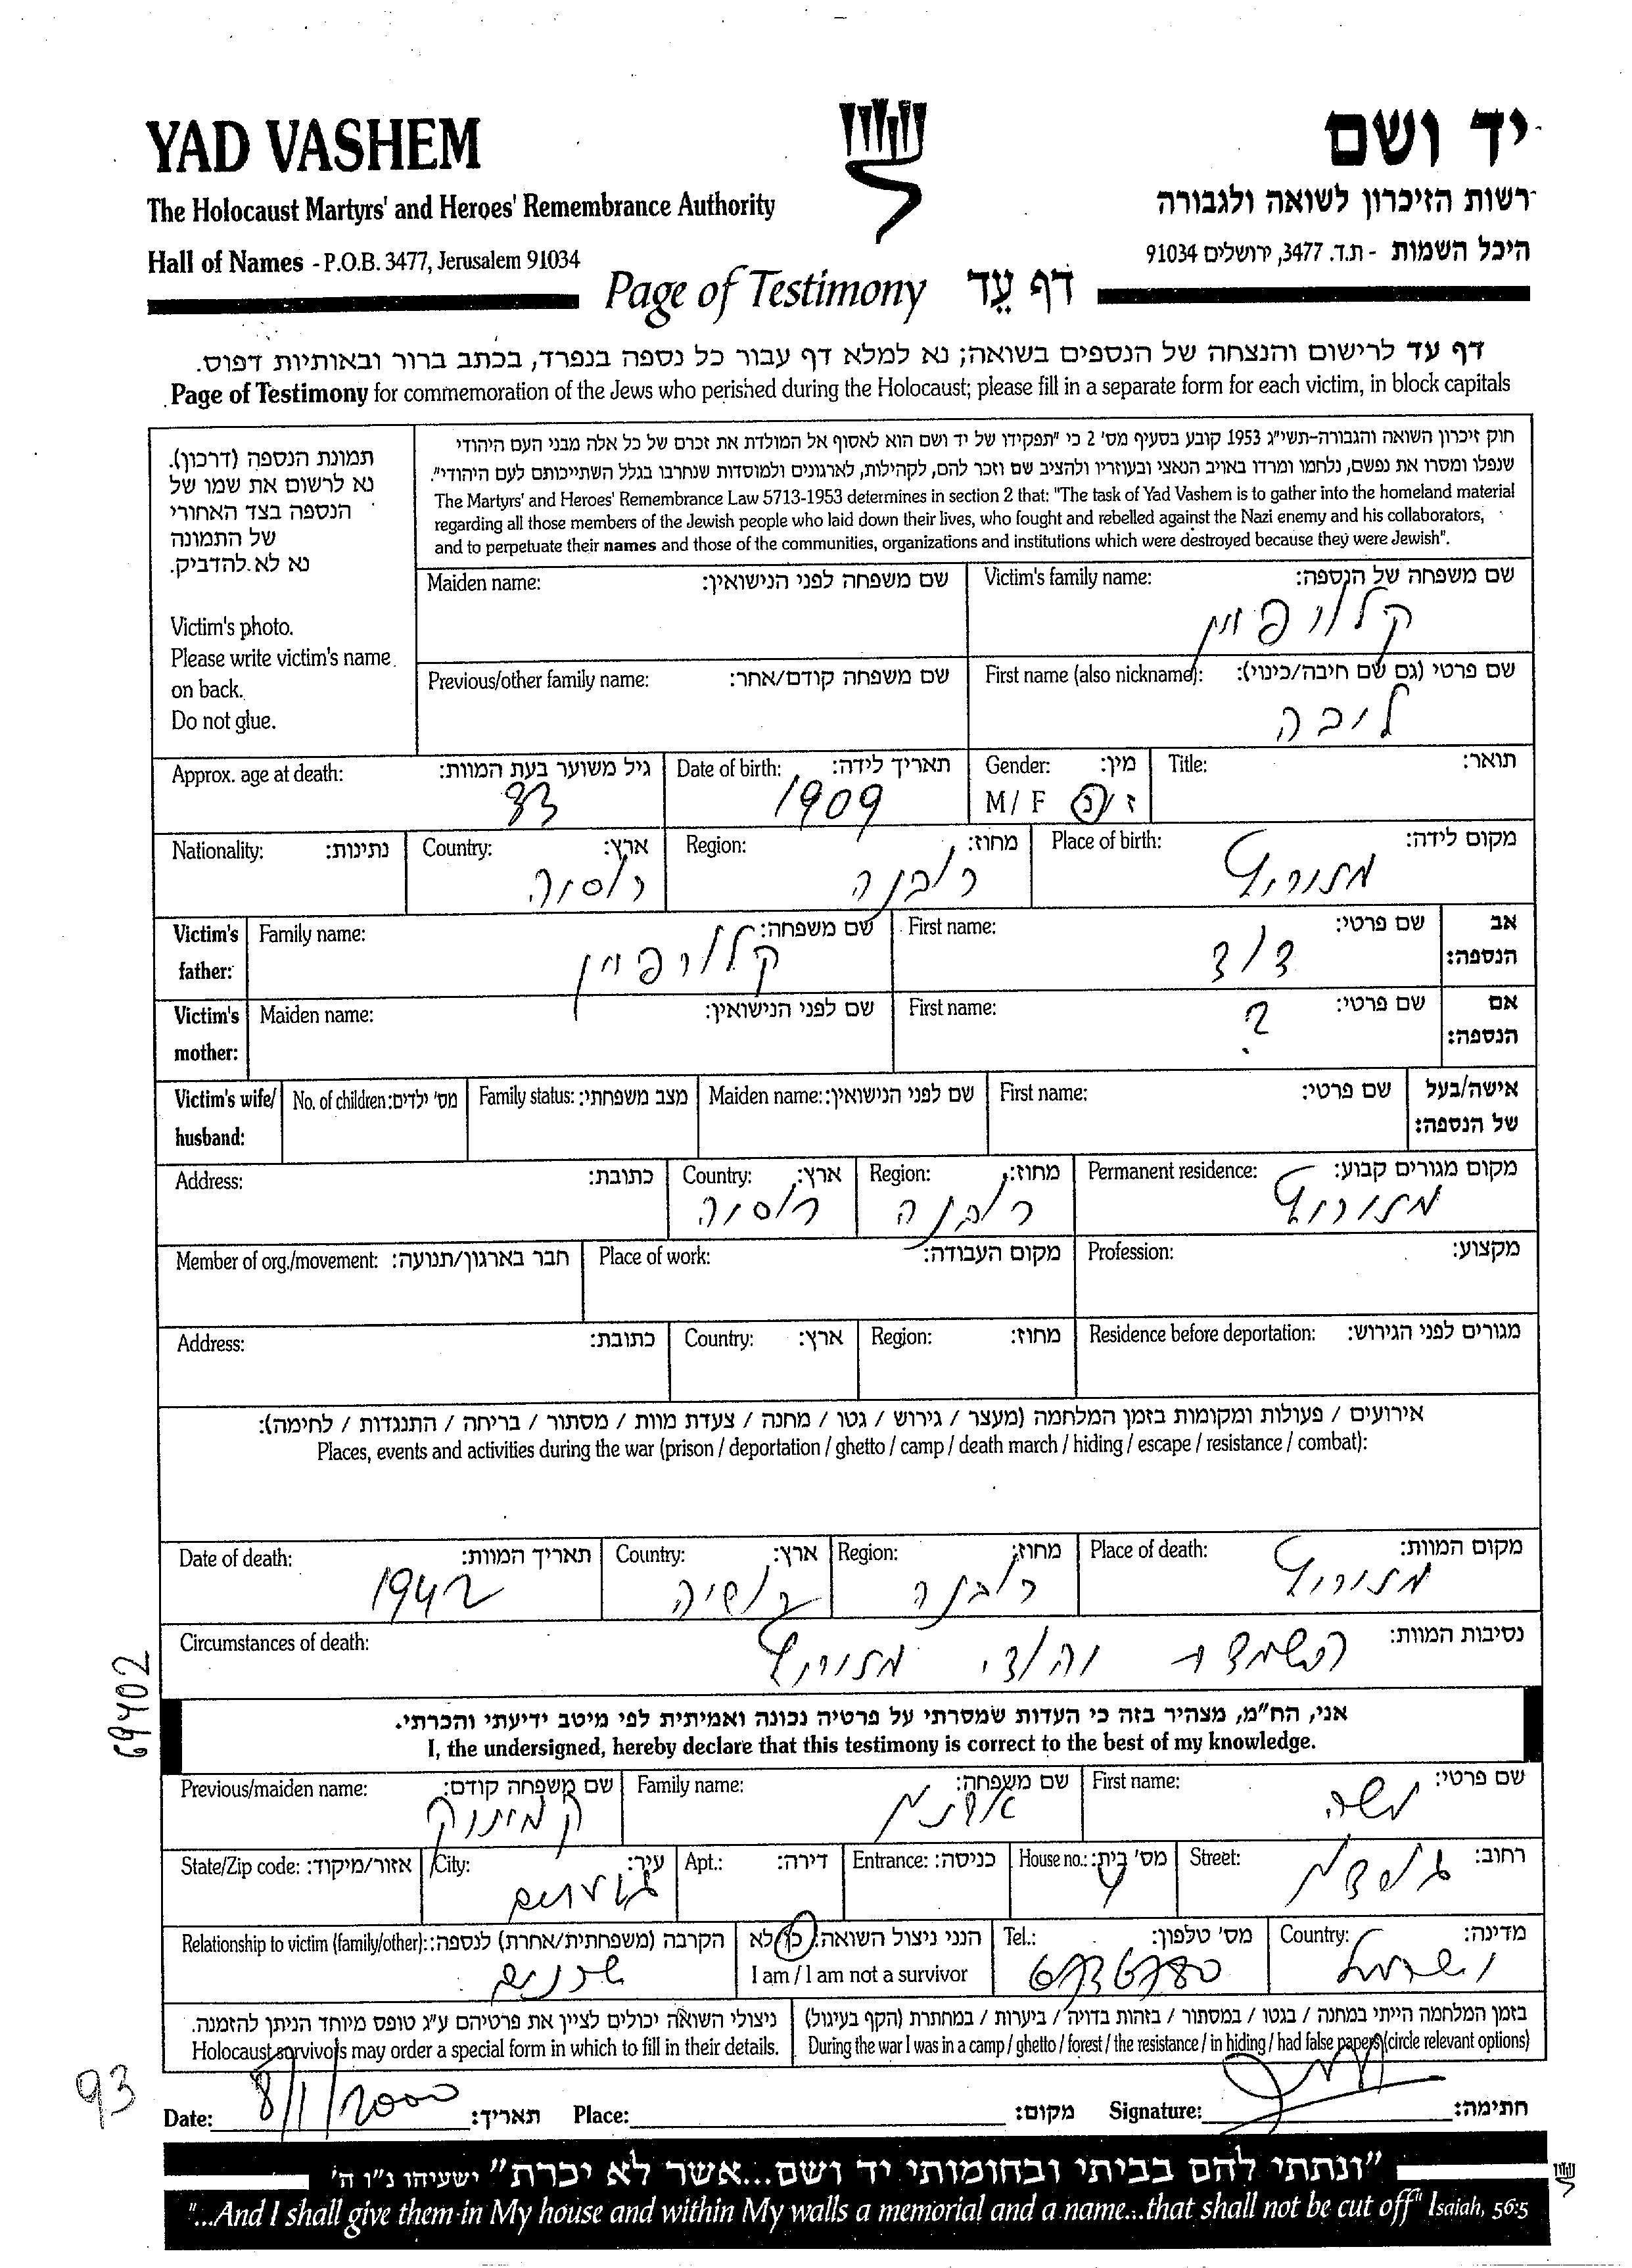 YAD VASHEM
יד ושם
The Holocaust Martyrs' and Heroes' Remembrance Authority
רשות הזיכרון לשואה ולגבורה
Hall of Names - P.O.B. 3477, Jerusalem 91034
היכל השמות - ת.ד. 3477, ירושלים 91034
Page of Testimony דף עֵד
דף עד לרישום והנצחה של הנספים בשואה; נא למלא דף עבור כל נספה בנפרד, בכתב ברור ובאותיות דפוס.
Page of Testimony for commemoration of the Jews who perished during the Holocaust; please fill in a separate form for each victim, in block capitals
תמונת הנספה (דרכון).
נא לרשום את שמו של
הנספה בצד האחורי
של התמונה
נא לא להדביק.
Victim's photo.
Please write victim's name
on back.
Do not glue.
חוק זיכרון השואה והגבורה-תשי"ג 1953 קובע בסעיף מס' 2 כי "תפקידו של יד ושם הוא לאסוף אל המולדת את זכרם של כל אלה מבני העם היהודי
שנפלו ומסרו את נפשם, נלחמו ומרדו באויב הנאצי ובעוזריו ולהציב שם וזכר להם, לקהילות, לארגונים ולמוסדות שנחרבו בגלל השתייכותם לעם היהודי".
The Martyrs' and Heroes' Remembrance Law 5713-1953 determines in section 2 that: "The task of Yad Vashem is to gather into the homeland material
regarding all those members of the Jewish people who laid down their lives, who fought and rebelled against the Nazi enemy and his collaborators,
and to perpetuate their names and those of the communities, organizations and institutions which were destroyed because they were Jewish".
שם משפחה של הנספה: Victim's family name:
שם משפחה לפני הנישואין: Maiden name:
שם פרטי (גם שם חיבה/כינוי): First name (also nickname):
לובה
שם משפחה קודם/אחר: Previous/other family name:
תואר: Title:
מין: Gender:
ז / נ M / F
תאריך לידה: Date of birth:
1909
גיל משוער בעת המוות: Approx. age at death:
33
מקום לידה: Place of birth:
מזוריץ
מחוז: Region:
רובנה
ארץ: Country:
רוסיה
נתינות: Nationality:
אב הנספה: Victim's father:
שם פרטי: First name:
דוד
שם משפחה: Family name:
אם הנספה: Victim's mother:
שם פרטי: First name:
?
שם לפני הנישואין: Maiden name:
אישה/בעל של הנספה: Victim's wife/ husband:
שם פרטי: First name:
שם לפני הנישואין: Maiden name:
מצב משפחתי: Family status:
מס' ילדים: No. of children:
מקום מגורים קבוע: Permanent residence:
מזוריץ
מחוז: Region:
רובנה
ארץ: Country:
רוסיה
כתובת: Address:
מקצוע: Profession:
מקום העבודה: Place of work:
חבר בארגון/תנועה: Member of org./movement:
מגורים לפני הגירוש: Residence before deportation:
מחוז: Region:
ארץ: Country:
כתובת: Address:
אירועים / פעולות ומקומות בזמן המלחמה (מעצר / גירוש / גטו / מחנה / צעדת מוות / מסתור / בריחה / התנגדות / לחימה):
Places, events and activities during the war (prison / deportation / ghetto / camp / death march / hiding / escape / resistance / combat):
מקום המוות: Place of death:
מזוריץ
מחוז: Region:
רובנה
ארץ: Country:
רושיה
תאריך המוות: Date of death:
1942
נסיבות המוות: Circumstances of death:
השמדת יהודי מזוריץ
69402
אני, הח"מ, מצהיר בזה כי העדות שמסרתי על פרטיה נכונה ואמיתית לפי מיטב ידיעתי והכרתי.
I, the undersigned, hereby declare that this testimony is correct to the best of my knowledge.
שם פרטי: First name:
משה
שם משפחה: Family name:
שם משפחה קודם: Previous/maiden name:
רחוב: Street:
מס' בית: House no.:
4
כניסה: Entrance:
דירה: Apt.:
עיר: City:
גבעתיים
אזור/מיקוד: State/Zip code:
מדינה: Country:
ישראל
מס' טלפון: Tel.:
הנני ניצול השואה: כן/לא
I am / I am not a survivor
הקרבה (משפחתית/אחרת) לנספה: Relationship to victim (family/other):
שכנים
בזמן המלחמה הייתי במחנה / בגטו / במסתור / בזהות בדויה / ביערות / במחתרת (הקף בעיגול)
During the war I was in a camp / ghetto / forest / the resistance / in hiding / had false papers (circle relevant options)
ניצולי השואה יכולים לציין את פרטיהם ע"ג טופס מיוחד הניתן להזמנה.
Holocaust survivors may order a special form in which to fill in their details.
93
Date: 8/1/2000 תאריך: Place: מקום: Signature: חתימה:
"ונתתי להם בביתי ובחומותי יד ושם...אשר לא יכרת" ישעיהו נ"ו ה'
"...And I shall give them in My house and within My walls a memorial and a name...that shall not be cut off" Isaiah, 56:5